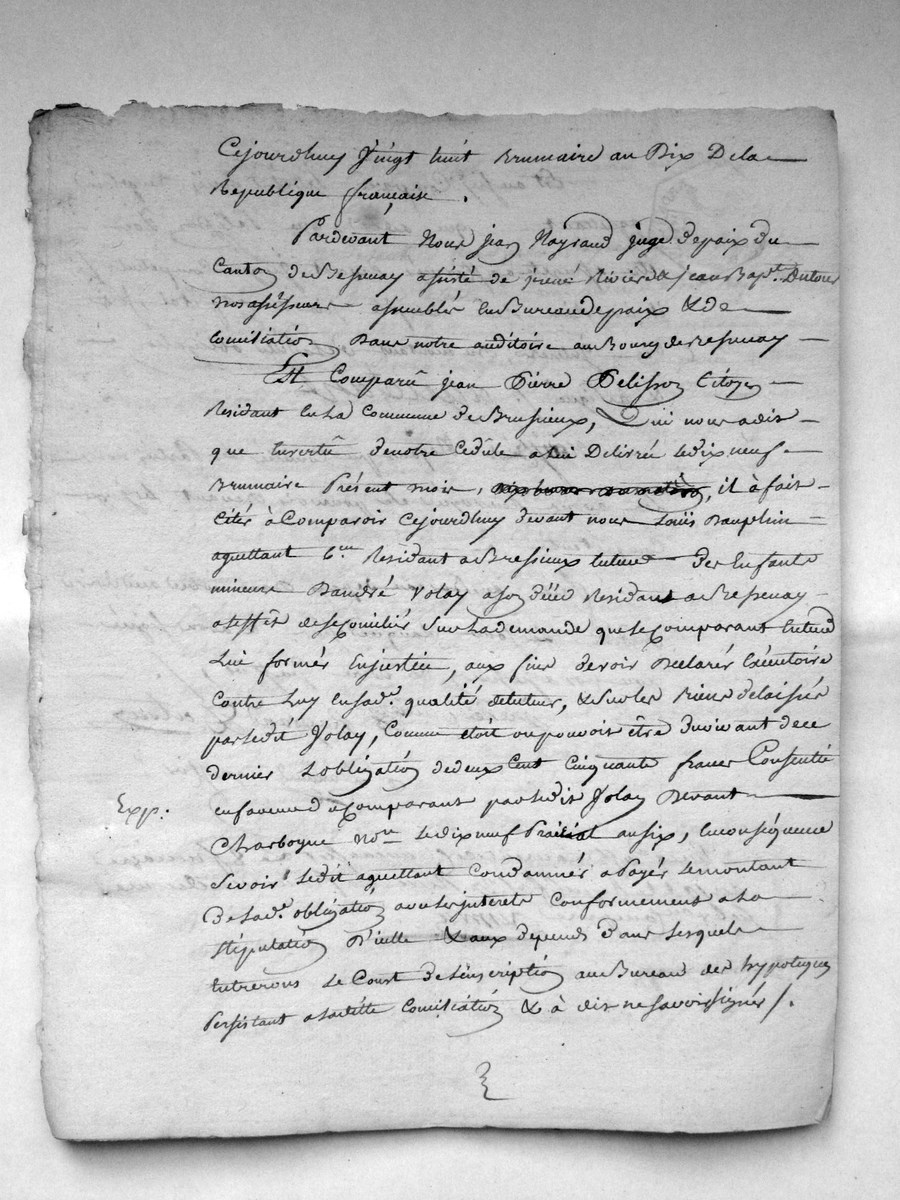 Cejourdhuy Vingt huit Brumaire an Dix Dela
Republique française.
Pardevant Nous jean Mayraud juge depaix du
Canton de Bessenay assisté de jrené Riviere & jean Bapt. Dutour
nos assesseurs assemblés en Bureau depaix & de
Conciliation Dans notre auditoire au Bourg de Bessenay
Est Comparû jean Pierre Pelisson Citoyen
Residant en La Commune de Brusieux, Qui nous a dit
que En vertû denotre Cedule a lui Delivrée le dix neuf
Brumaire Présent mois, il à fait
Citér à Comparoir Cejourdhuy devant nous Louis Dauphin
aguettant Residant a Bressieux tuteur des Enfants
mineurs D'andré Volay a son déséd Residant a Bessenay
a l'effet de se Conciliér Sur La demande que le Comparant Entend
Lui formér En justice, aux fins de voir Declarér Exécutoire
Contre Luy en sad.e qualité de tuteur, & sur les Biens delaissés
par ledit Volay, Comme étoit ou pouvoit être du vivant de ce
dernier L'obligation de deux Cent Cinquante francs Consentie
Exp.
en faveur du Comparant par ledit Volay Devant
Charbogne no.re le dix neuf Prairial an six, En conséquence
se voir ledit aguettant Condamnér a Payér le montant
De lad.e obligation avec les jnterets Conformement a la
stipulation D'icelle & aux depends Dans lesquels
Entrerons le Cout de L'inscription au Bureau des hypoteques
Persistant a ladite Conciliation & à dit ne savoir signér /.